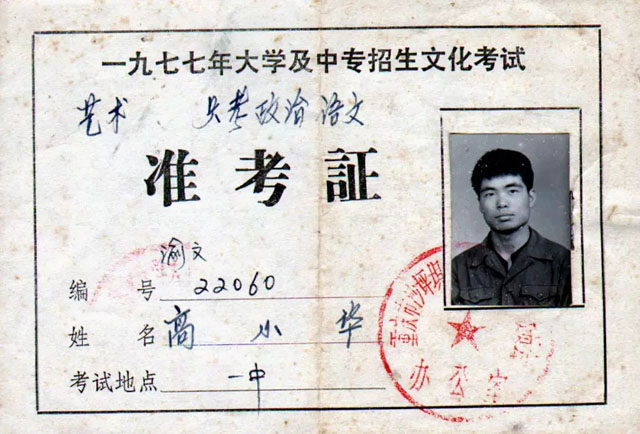 一九七七年大学及中专招生文化考试
艺术 只考政治语文
准考証
渝文
编 号 22060
姓 名 高小华
考试地点 一中
重庆市沙坪坝
办公室